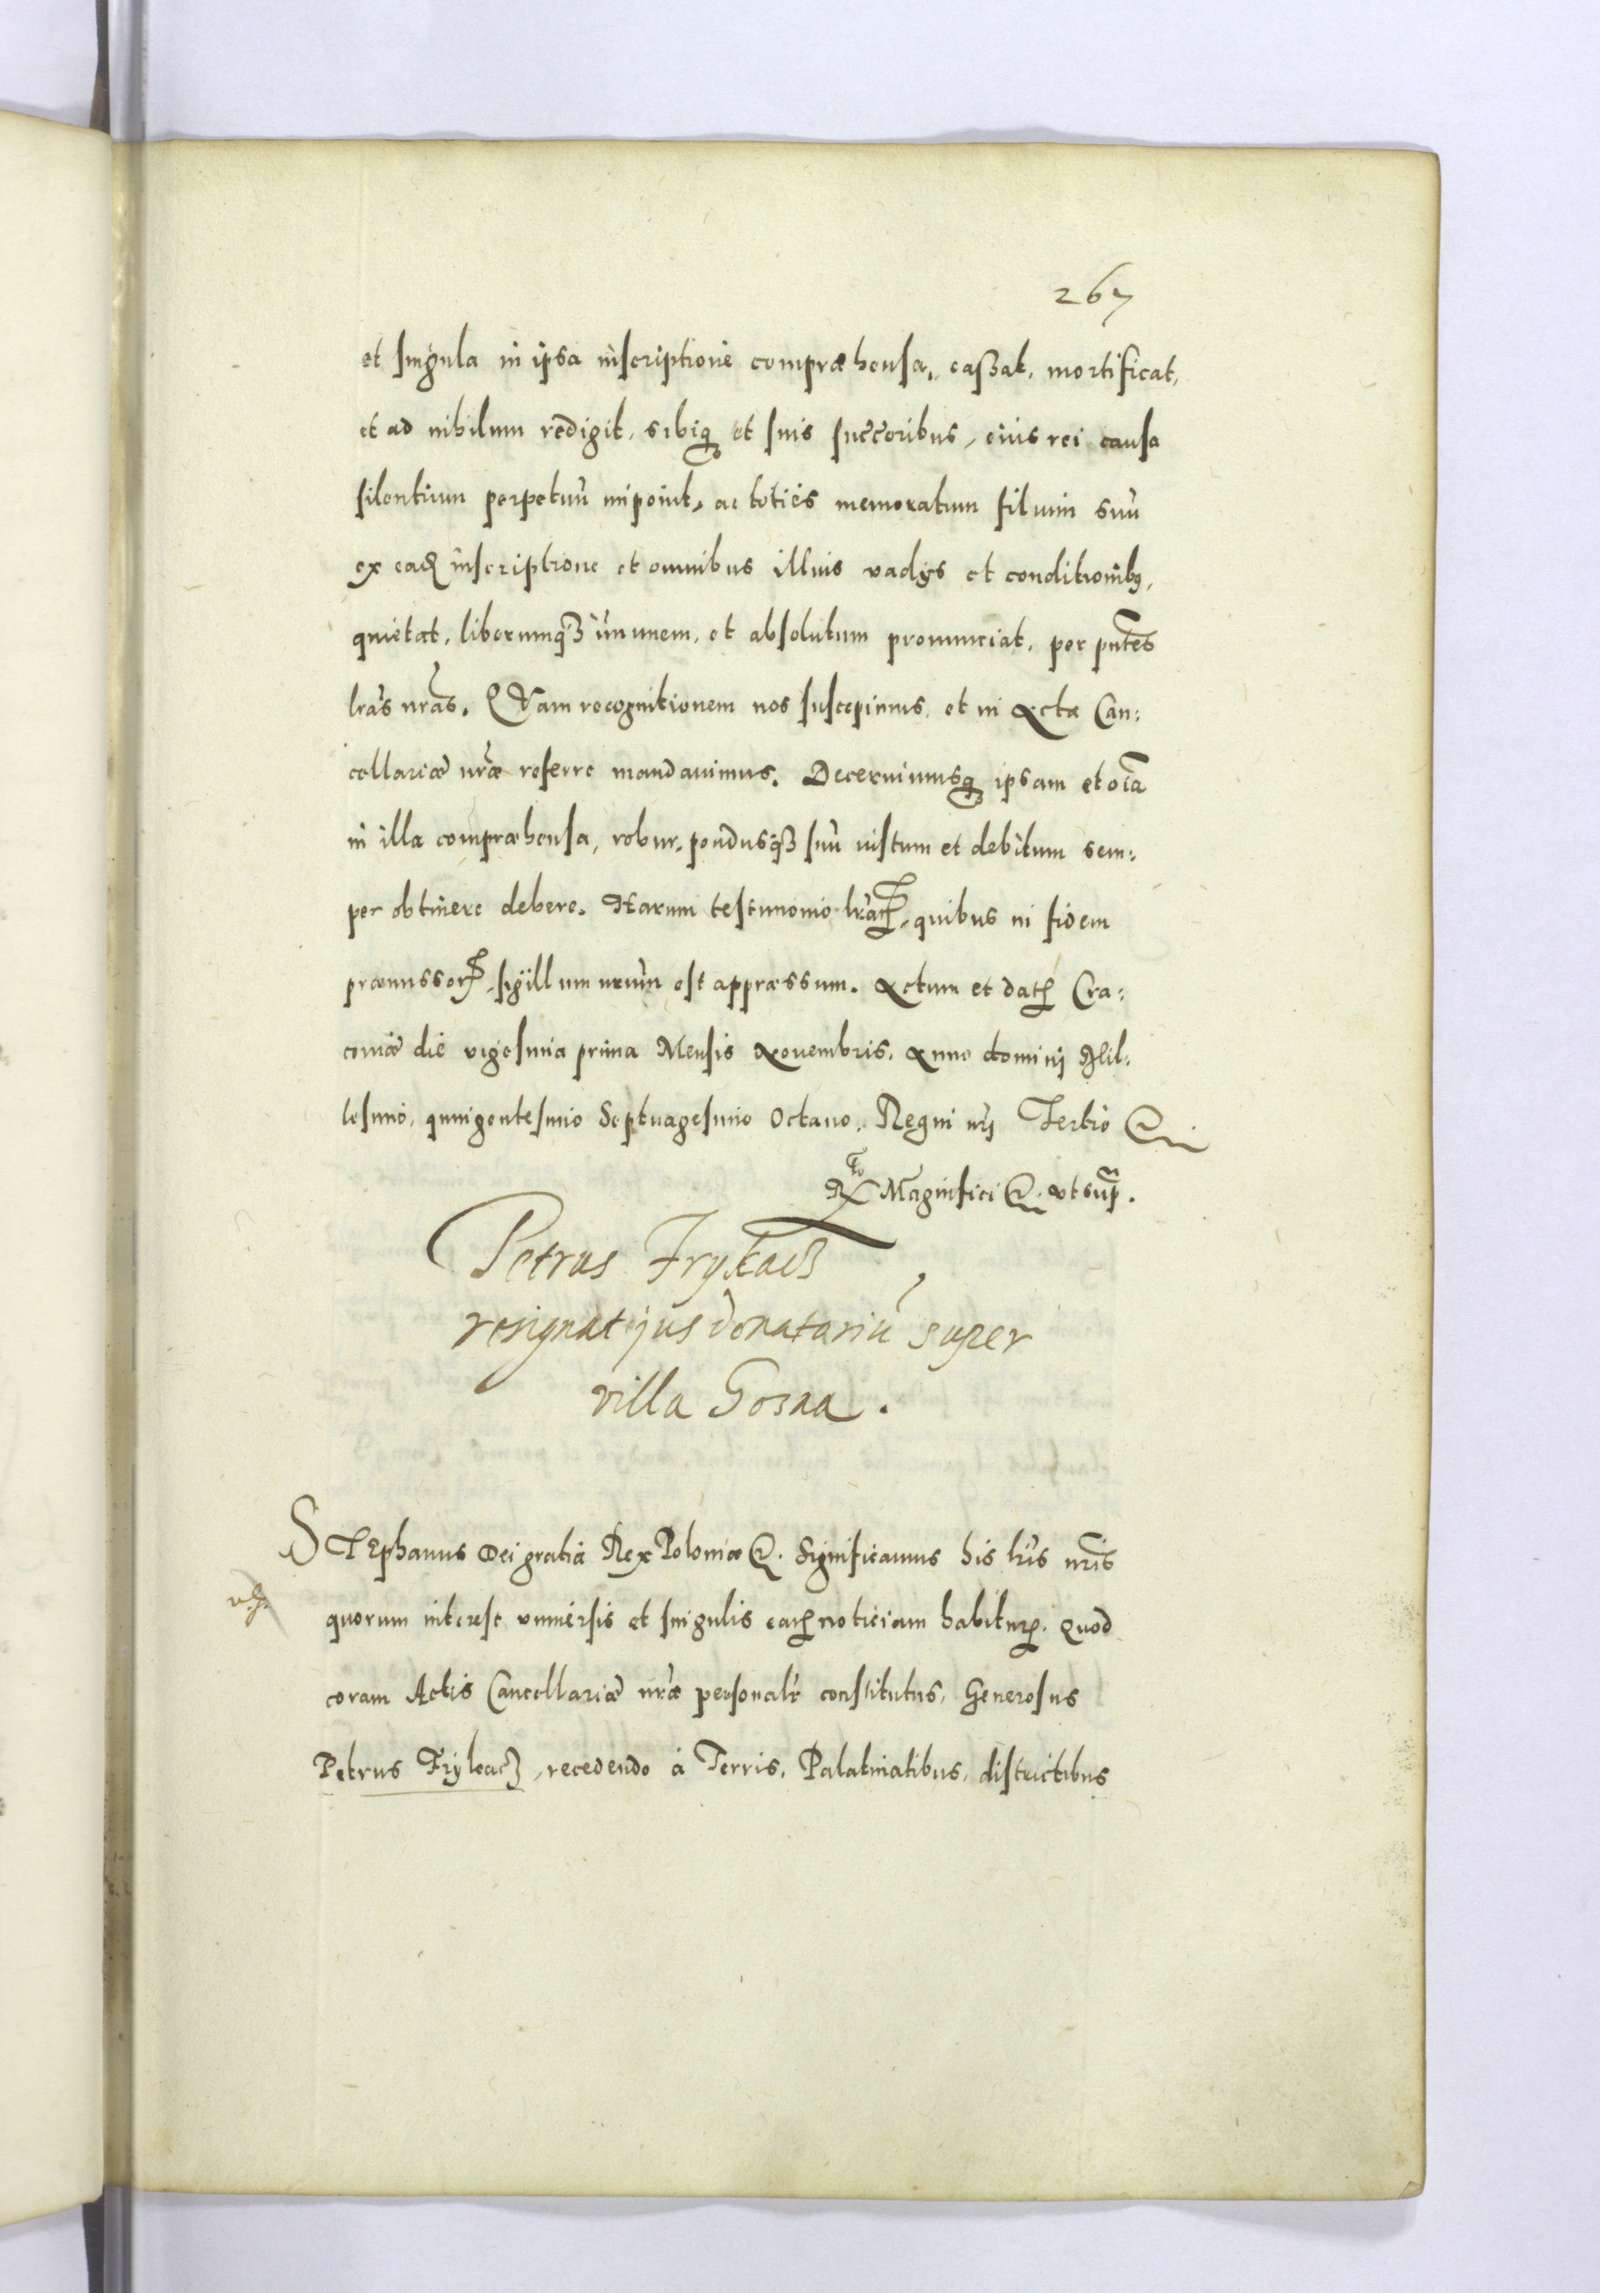 267
et singula in ipsa inscriptione compræhensa, cassat, mortificat,
et ad nihilum redigit, sibiq et suis succoribus, eius rei causa
silentium perpetuū imponit, ac toties memoratum filium suū
ex eadē inscriptione et omnibus illius vadys et conditionibꝫ,
quietat, liberumqꝫ immunem, et absolutum pronunciat, per pntes
lras nras. QVam recognitionem nos suscepimus, et in Acta Can:
cellariæ nræ referre mandauimus. Decernimusq ipsam et oīa
in illa compræhensa, robur, pondusqꝫ suū iustum et debitum sem:
per obtinere debere. Harum testimonio lrarꝝ, quibus in fidem
præmissorꝝ, sigillum nrum est appræssum. Actum et datū Cra:
couiæ die vigesima prima Mensis Nouembris, Anno domini Mil:
lesimo, quingentesimo Septuagesimo Octauo, Regni nrj Tertio &
Rto Magnifici & vt sup.
Petrus Frykacz
resignat jus donatariū super
villa
STEphanus Dei gratia Rex Poloniæ & Significamus his lris nris
quorum interest vniuersis et singulis earū noticiam habiturꝭ. Quod
coram Actis Cancellariæ nræ personalr constitutus, Generosus
Petrus Frykacz, recedendo à Terris, Palatinatibus, districtibus